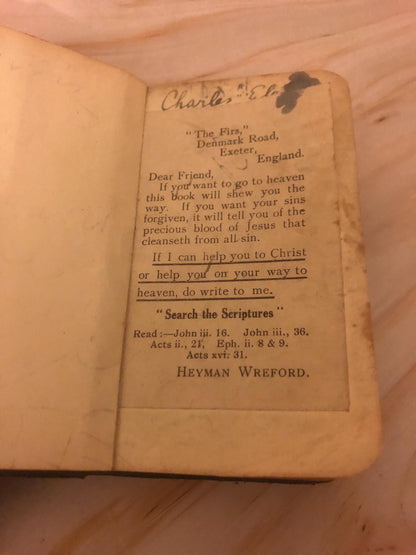 Charles
"The Firs,"
Denmark Road,
Exeter,
England.
Dear Friend,
If you want to go to heaven
this book will shew you the
way. If you want your sins
forgiven, it will tell you of the
precious blood of Jesus that
cleanseth from all sin.
If I can help you to Christ
or help you on your way to
heaven, do write to me.
"Search the Scriptures"
Read :—John iii. 16. John iii., 36.
Acts ii., 21, Eph. ii. 8 & 9.
Acts xvi. 31.
HEYMAN WREFORD.